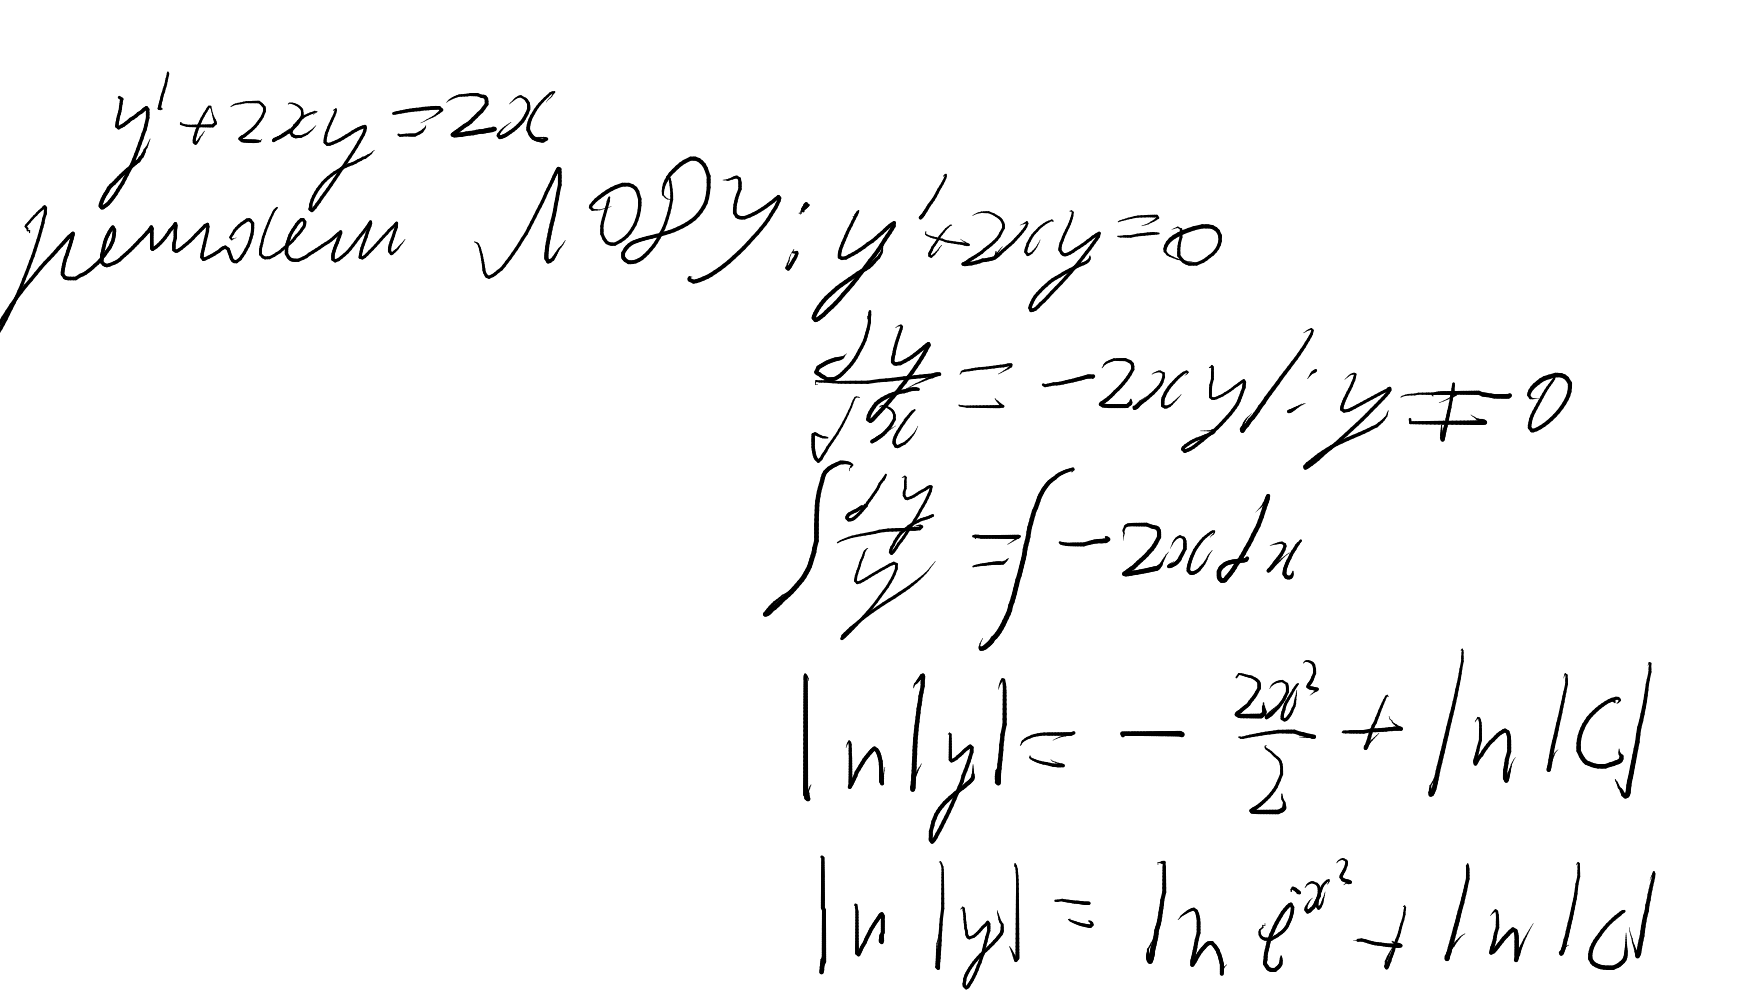 y' + 2xy = 2x
решаем ЛОДУ: y' + 2xy = 0
dy/dx = -2xy /: y ≠ 0
∫ dy/y = ∫ -2x dx
ln|y| = - 2x²/2 + ln|C|
ln|y| = ln e^{-x²} + ln|C|